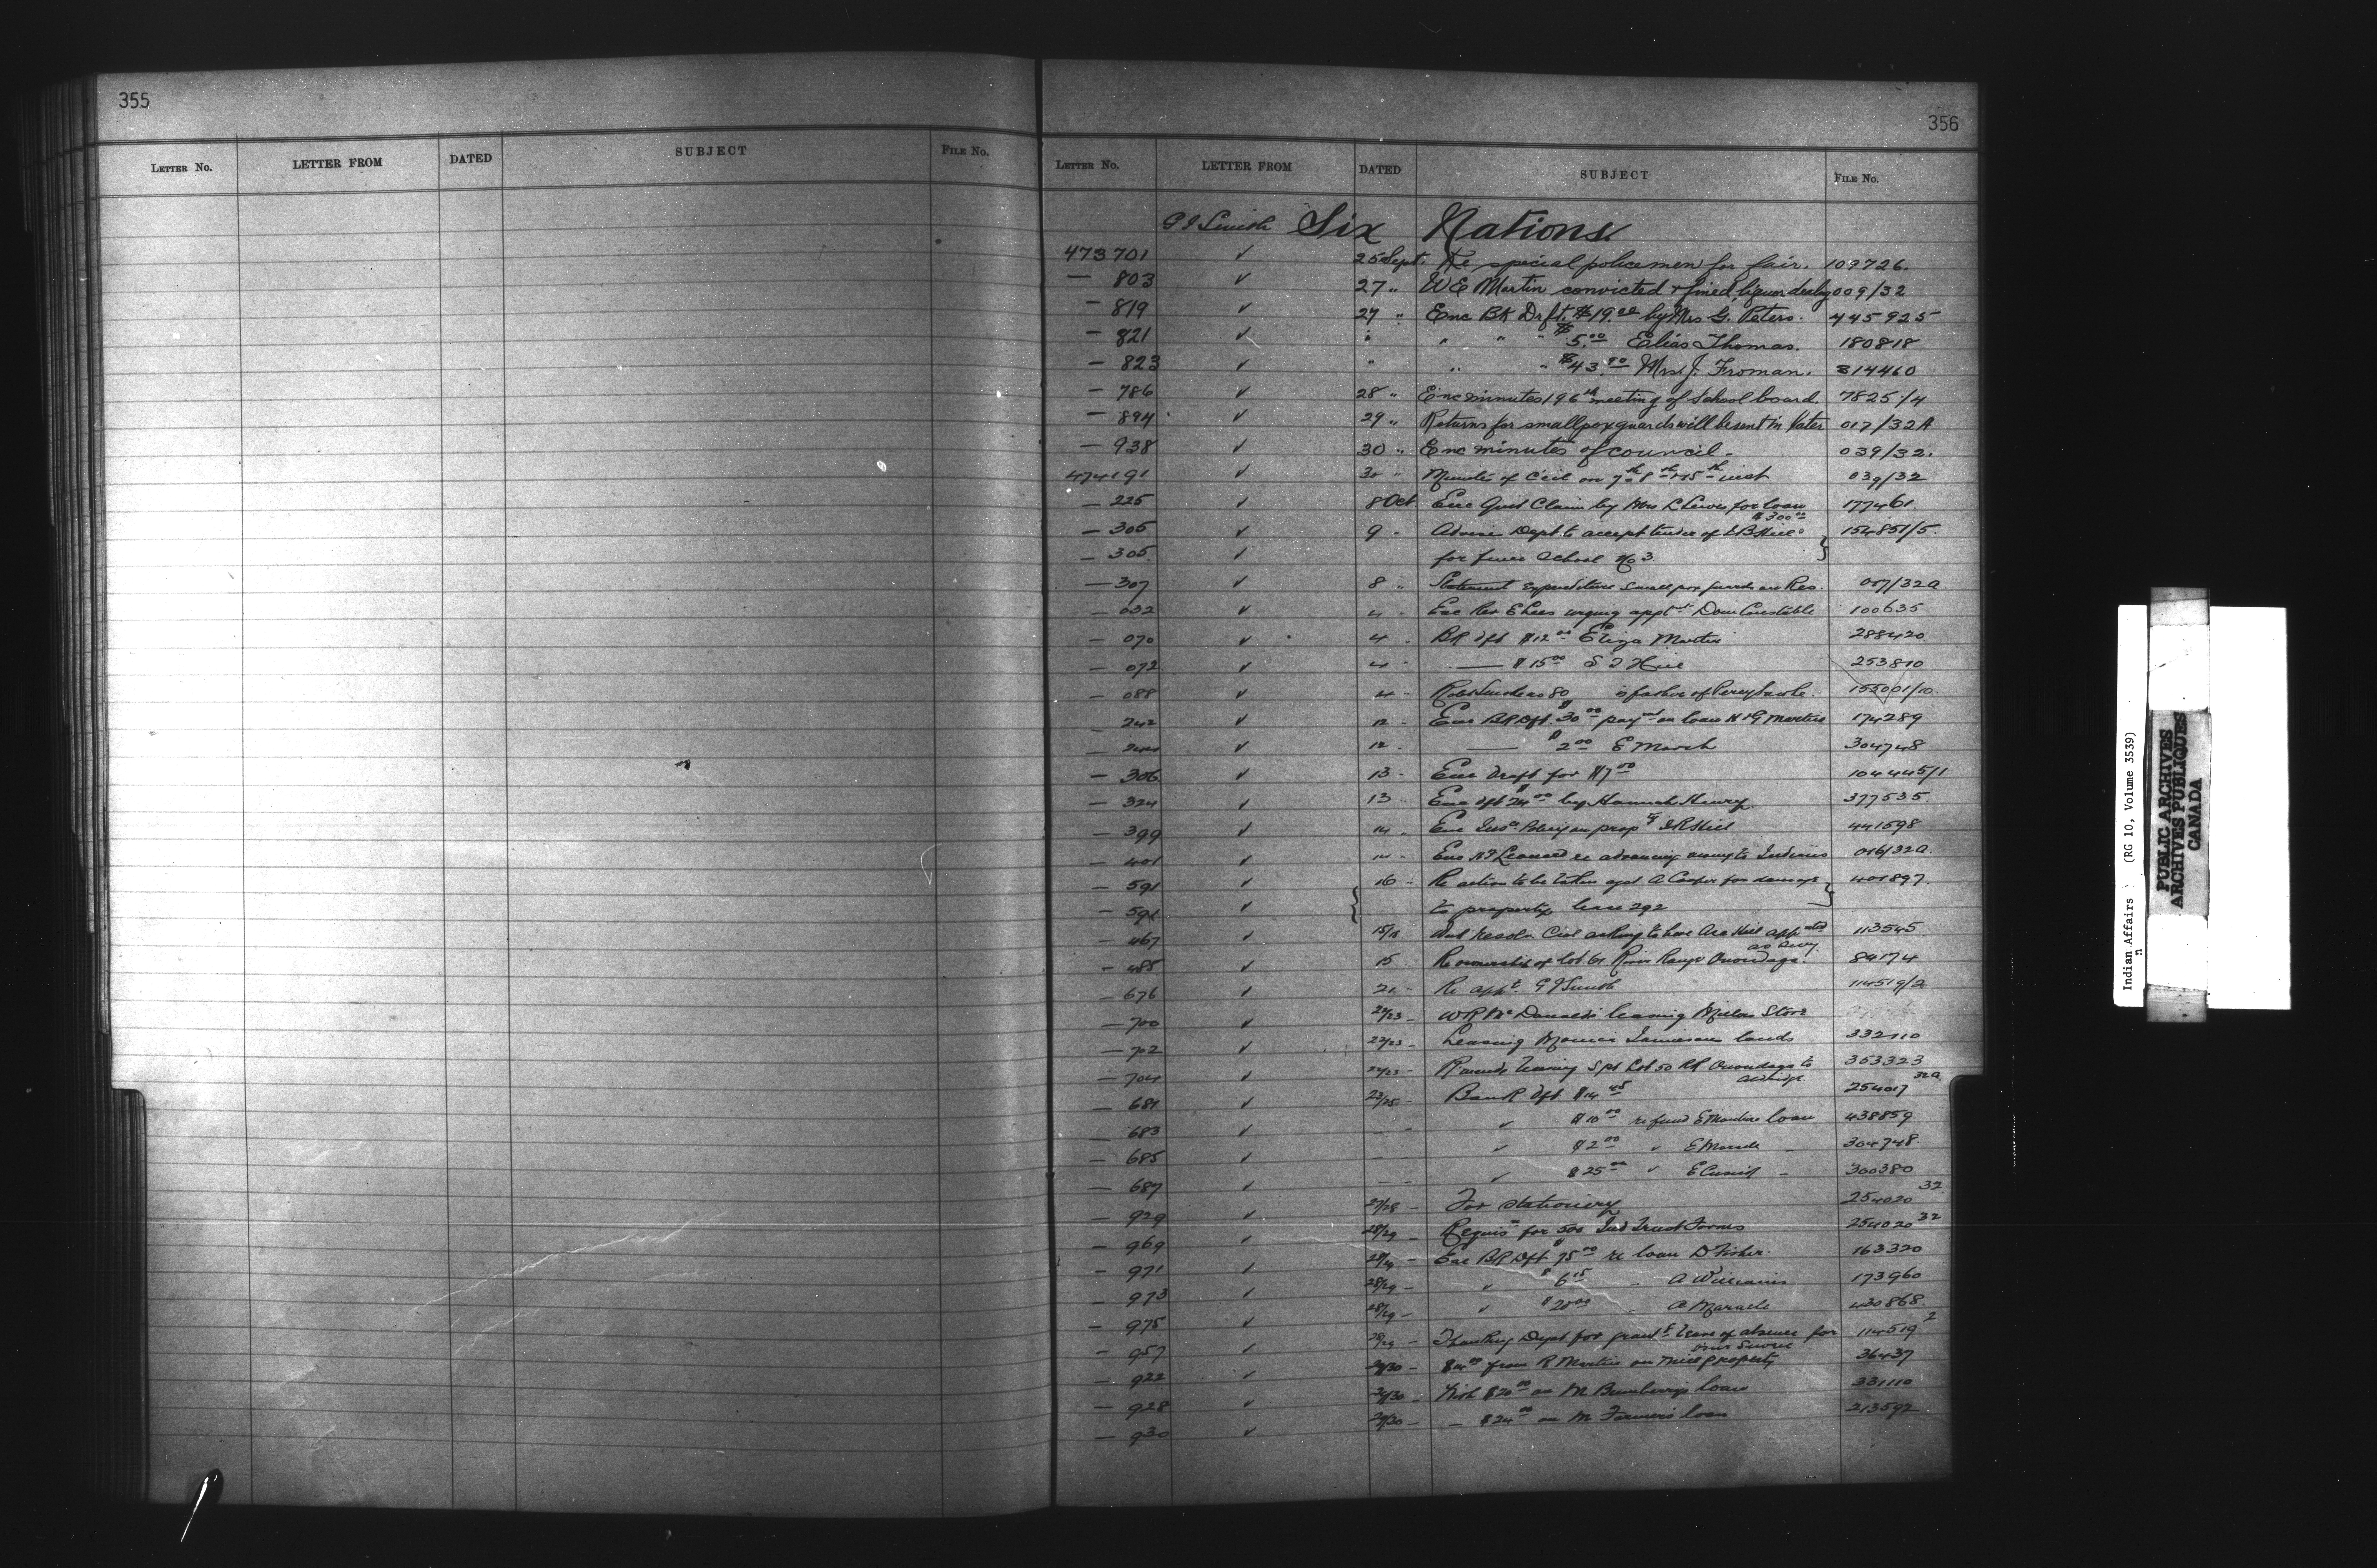 355
LETTER No. LETTER FROM DATED SUBJECT FILE No.
356
LETTER No. LETTER FROM DATED SUBJECT FILE No.
G J Smith Six Nations
473701 ✓ 25 Sept. Re special policemen for fair. 109726.
— 803 ✓ 27 " W E Martin convicted + fined, liquor dealing 009/32
— 819 ✓ 27 " Enc Bk Drft. $19.00 by Mrs G. Peters. 445925
— 821 ✓ " " " " $5.00 Elias Thomas. 180818
— 823 ✓ " " " $43.90 Mrs. J. Froman. 314460
— 786 ✓ 28 " Enc minutes 196th meeting of School board. 7825/4
— 894 ✓ 29 " Returns for smallpox guards will be sent in later 017/32A
— 938 ✓ 30 " Enc minutes of council. 039/32.
474191 ✓ 30 " Minutes of Ccil on 7th 8th + 15th inst 039/32
— 225 ✓ 8 Oct. Enc Quit Claim by Mrs L Lewis for loan 177461.
$300.00
— 305 ✓ 9 - Advise Dept. to accept tender of 154851/5.
— 305. ✓ for fence School No 3.
— 307 ✓ 8 " Statement expenditure small pox guards on Res. 017/32A
— 032 ✓ 4 - Enc Rev E Lees urging appt Dom Constable 100635
— 070 ✓ 4 - Bk dft $12.00 Eliza Martin 288420
— 072 ✓ 4 - — $15.00 253810
— 088 ✓ 4 - is father of Percy 155001/10.
— 242 ✓ 12 - Enc Bk Dft. $30.00 paymt on loan Martin 174289
— 244 ✓ 12 - — $2.00 E Marsh 304748
— 306 ✓ 13 - Enc draft for $7.00 104445/1
— 324 ✓ 13 - Enc dft $24.00 by Hannah Henry. 377535.
— 399 ✓ 14 - Enc Insce. Policy on propty Hill 441598
— 401 ✓ 14 - Enc Leonard re advancing money to Indians 016/32A.
— 591 ✓ 16 - Re action to be taken agst A Cooper for damage 401897.
— 591 ✓ to property lease 292
— 467 ✓ 15/18 resoln. Ccil asking to have Asa Hill appntd 113545
as Secy.
— 485 ✓ 15 Re ownership of lot 61 River Range Onondaga. 89174
— 676 ✓ 21 - Re appt. G J Smith 114519/2
— 700 ✓ 22/23 - W R McDonald's leasing Store
— 702 ✓ 22/23 - Leasing Jamieson lands 332110
— 704 ✓ 22/23 - leasing S pt Lot 50 RR Onondaga to 353323
— 681 ✓ 23/25 - Bank dft. $14.45 254017 32A
— 683 ✓ — - ✓ $10.00 refund loan 438859
— 685 ✓ — - ✓ $2.00 ✓ E Marsh - 304748.
— 687 ✓ — - ✓ $25.00 ✓ - 300380
— 929 ✓ 27/28 - For stationery 254020 32
— 969 ✓ 28/29 - Requisn for 500 Ind Trust Forms 254020 32
— 971 ✓ 28/29 - Enc Bk Dft $75.00 re loan D Fisher. 163320
— 973 ✓ 28/29 - ✓ $6.15 - A Williams 173960
— 975 ✓ 28/29 - ✓ $20.00 - 430868.
— 957 ✓ 28/29 - Thanking Dept for grantg. leave of absence for 114519 2
— 922 ✓ 29/30 - from R Martin on property 36437
— 928 ✓ 29/30 - With $20.00 on M Bumberry's loan 331110
— 930 ✓ 29/30 - — $24.00 on M Farmer's loan 213592
Indian Affairs (RG 10, Volume 3539)
PUBLIC ARCHIVES
ARCHIVES PUBLIQUES
CANADA